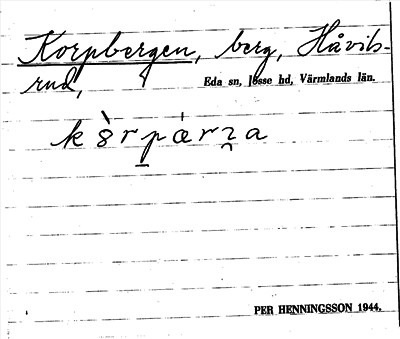 Korpbergen, berg, Håvils-
rud,
Eda sn, Jösse hd, Värmlands län.
PER HENNINGSSON 1944.